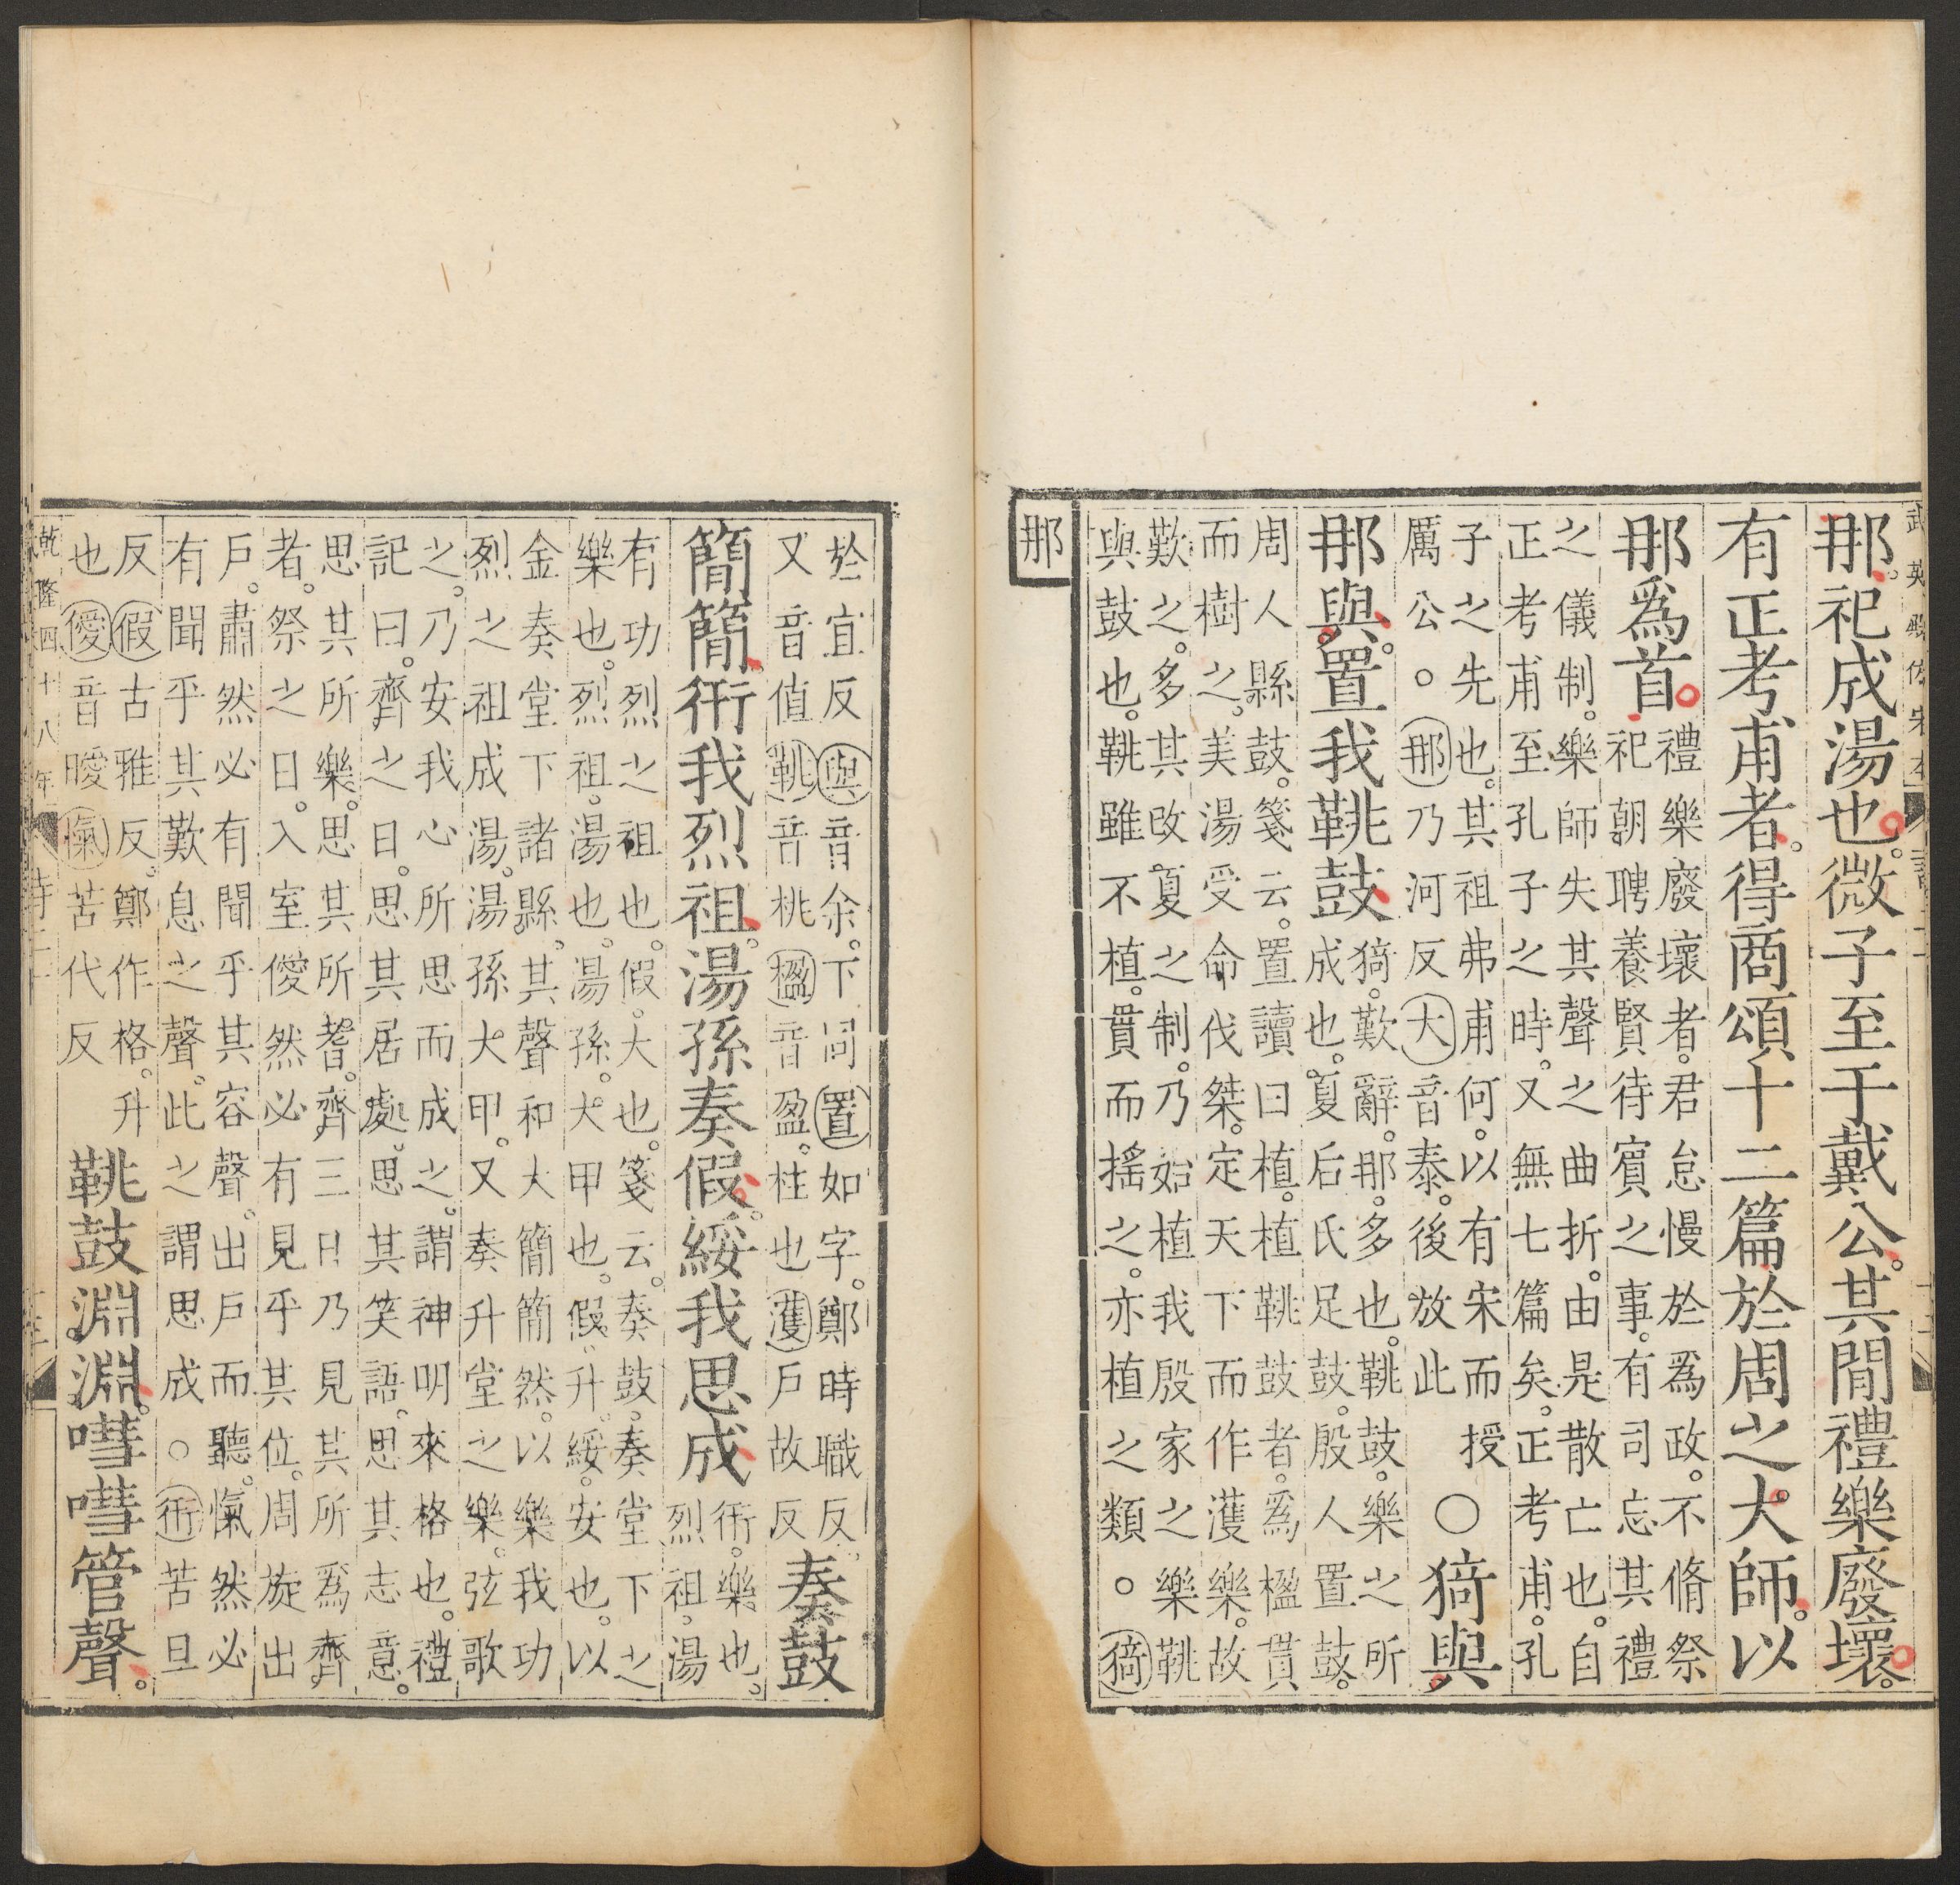 那。祀成湯也。微子至于戴公。其閒禮樂廢壞。
有正考甫者。得商頌十二篇於周之大師。以
那爲首。
禮樂廢壞者。君怠慢於爲政。不脩祭
祀朝聘養賢待賓之事。有司忘其禮
之儀制。樂師失其聲之曲折。由是散亡也。自
正考甫至孔子之時。又無七篇矣。正考甫。孔
子之先也。其祖弗甫何。以有宋而授
厲公。○那乃河反大音泰。後放此
○猗與
那與。置我鞉鼓。
猗。歎辭。那。多也。鞉鼓。樂之所
成也。夏后氏足鼓。殷人置鼓。
周人縣鼓。箋云。置讀曰植。植鞉鼓者。爲楹貫
而樹之。美湯受命伐桀。定天下而作濩樂。故
歎之。多其改夏之制。乃始植我殷家之樂鞉
與鼓也。鞉雖不植。貫而搖之。亦植之類。○猗
那
於宜反與音余。下同置如字。鄭時職反。
又音值鞉音桃楹音盈。柱也濩戶故反
奏鼓
簡簡。衎我烈祖。湯孫奏假。綏我思成。
衎。樂也。
烈祖。湯
有功烈之祖也。假。大也。箋云。奏鼓。奏堂下之
樂也。烈祖。湯也。湯孫。大甲也。假。升。綏。安也。以
金奏堂下諸縣。其聲和大簡簡然。以樂我功
烈之祖成湯。湯孫大甲。又奏升堂之樂。弦歌
之。乃安我心所思而成之。謂神明來格也。禮
記曰。齊之日。思其居處。思其笑語。思其志意。
思其所樂。思其所耆。齊三日乃見其所爲齊
者。祭之日。入室僾然必有見乎其位。周旋出
戶。肅然必有聞乎其容聲。出戶而聽。愾然必
有聞乎其歎息之聲。此之謂思成。○衎苦旦
反假古雅反。鄭作格。升
也僾音曖愾苦代反
鞉鼓淵淵。嘒嘒管聲。
乾隆四十八年